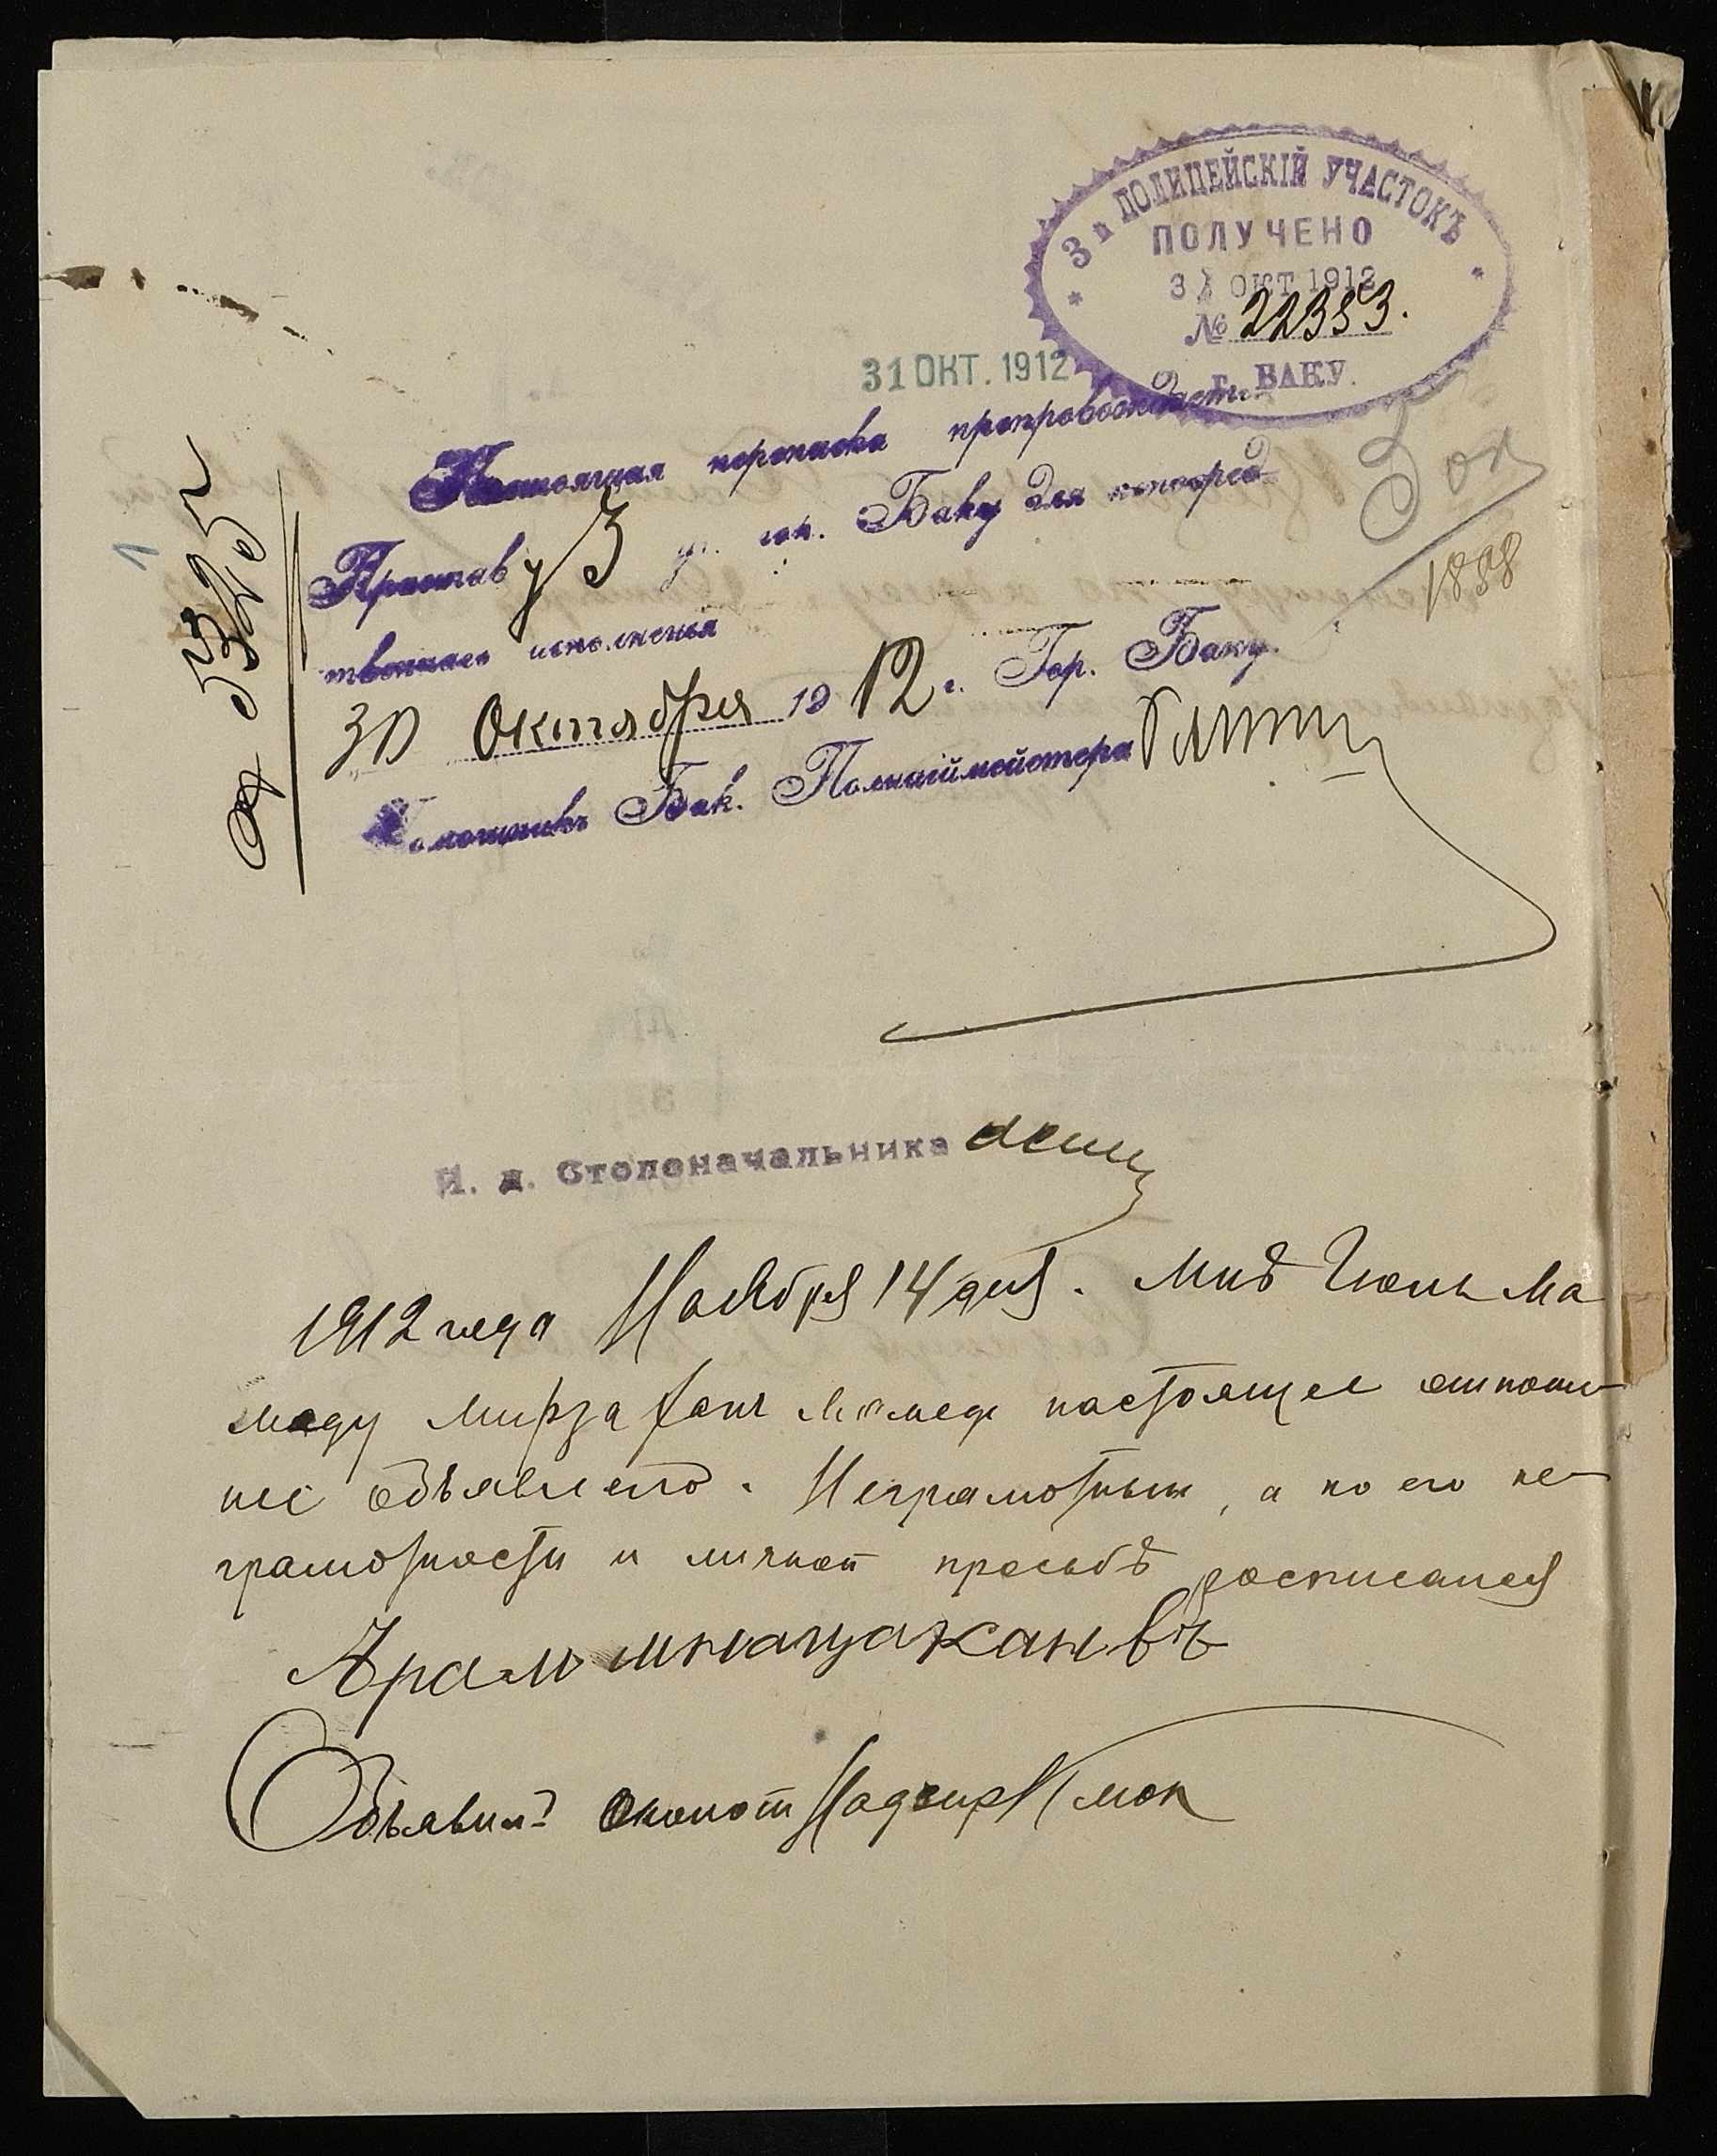 3й ПОЛИЦЕЙСКІЙ УЧАСТОКЪ
ПОЛУЧЕНО
31 ОКТ 1912
№ 22383.
г. БАКУ.
31 ОКТ. 1912
Настоящая переписка препровождается
Приставу 3 уч. гор. Баку для непосред-
твеннаго исполненія
30 Октября 1912 г. Гор. Баку.
Помощникъ Бак. Полиціймейстера
5325
3 ок
1888
И. д. Столоначальника
1912 года Ноября 14 дня. Мнѣ
меду Мирза настоящее отноше-
ніе объявлено. Неграмотный, а по его не-
грамотности и личной просьбѣ росписался
Арам Мнацакановъ
Объявилъ Околот Надзир